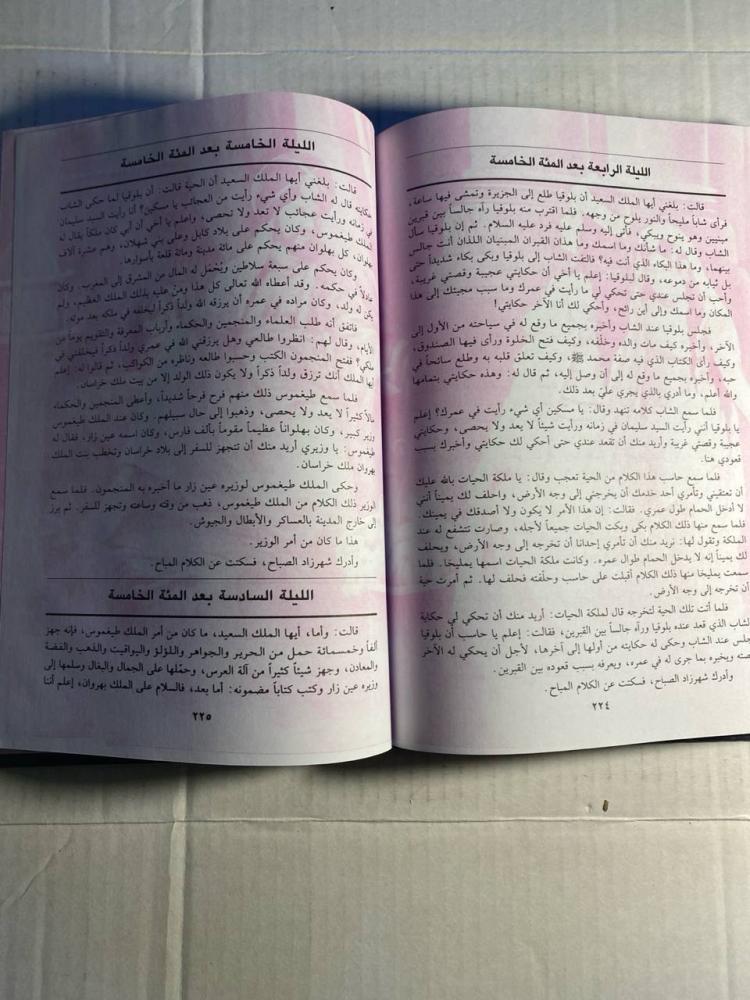 الليلة الرابعة بعد المئة الخامسة
قالت: بلغني أيها الملك السعيد أن بلوقيا طلع إلى الجزيرة وتمشى فيها ساعة،
فرأى شاباً مليحاً والنور يلوح من وجهه. فلما اقترب منه بلوقيا رآه جالساً بين قبرين
مبنيين وهو ينوح ويبكي، فأتى إليه وسلم عليه فرد عليه السلام. ثم إن بلوقيا سأل
الشاب وقال له: ما شأنك وما اسمك وما هذان القبران المبنيان اللذان أنت جالس
بينهما، وما هذا البكاء الذي أنت فيه؟ فالتفت الشاب إلى بلوقيا وبكى بكاء شديداً حتى
بل ثيابه من دموعه، وقال لبلوقيا: إعلم يا أخي أن حكايتي عجيبة وقصتي غريبة،
وأحب أن تجلس عندي حتى تحكي لي ما رأيت في عمرك وما سبب مجيئك إلى هذا
المكان وما اسمك وإلى أين رائح، وأحكي لك أنا الآخر حكايتي!
فجلس بلوقيا عند الشاب وأخبره بجميع ما وقع له في سياحته من الأول إلى
الآخر، وأخبره كيف مات والده وخلّفه، وكيف فتح الخلوة ورأى فيها الصندوق،
وكيف رأى الكتاب الذي فيه صفة محمد ﷺ، وكيف تعلق قلبه به وطلع سائحاً في
حبه، وأخبره بجميع ما وقع له إلى أن وصل إليه، ثم قال له: وهذه حكايتي بتمامها
والله أعلم، وما أدري بالذي يجري عليّ بعد ذلك.
فلما سمع الشاب كلامه تنهد وقال: يا مسكين أي شيء رأيت في عمرك؟ إعلم
يا بلوقيا أنني رأيت السيد سليمان في زمانه ورأيت شيئاً لا يعد ولا يحصى، وحكايتي
عجيبة وقصتي غريبة وأريد منك أن تقعد عندي حتى أحكي لك حكايتي وأخبرك بسبب
قعودي هنا.
فلما سمع حاسب هذا الكلام من الحية تعجب وقال: يا ملكة الحيات بالله عليك
أن تعتقيني وتأمري أحد خدمك أن يخرجني إلى وجه الأرض، واحلف لك يميناً أنني
لا أدخل الحمام طول عمري. فقالت: إن هذا الأمر لا يكون ولا أصدقك في يمينك.
فلما سمع منها ذلك الكلام بكى وبكت الحيات جميعاً لأجله، وصارت تتشفع له عند
الملكة وتقول لها: نريد منك أن تأمري إحدانا أن تخرجه إلى وجه الأرض، ويحلف
لك يميناً إنه لا يدخل الحمام طول عمره. وكانت ملكة الحيات اسمها يمليخا. فلما
سمعت يمليخا منها ذلك الكلام أقبلت على حاسب وحلّفته فحلف لها. ثم أمرت حية
أن تخرجه إلى وجه الأرض.
فلما أتت تلك الحية لتخرجه قال لملكة الحيات: أريد منك أن تحكي لي حكاية
الشاب الذي قعد عنده بلوقيا ورآه جالساً بين القبرين، فقالت: إعلم يا حاسب أن بلوقيا
جلس عند الشاب وحكى له حكايته من أولها إلى آخرها، لأجل أن يحكي له الآخر
قصته ويخبره بما جرى له في عمره، ويعرفه بسبب قعوده بين القبرين.
وأدرك شهرزاد الصباح، فسكتت عن الكلام المباح.
٢٢٤
الليلة الخامسة بعد المئة الخامسة
قالت: بلغني أيها الملك السعيد أن الحية قالت: أن بلوقيا لما حكى الشاب
حكايته قال له الشاب وأي شيء رأيت من العجائب يا مسكين؟ أنا رأيت السيد سليمان
في زمانه ورأيت عجائب لا تعد ولا تحصى، واعلم يا أخي أن أبي كان ملكاً يقال له
الملك طيغموس، وكان يحكم على بلاد كابل وعلى بني شهلان، وهم عشرة آلاف
بهلوان، كل بهلوان منهم يحكم على مائة مدينة ومائة قلعة بأسوارها.
وكان يحكم على سبعة سلاطين ويُحْمَل له المال من المشرق إلى المغرب. وكان
عادلاً في حكمه. وقد أعطاه الله تعالى كل هذا ومنّ عليه بذلك الملك العظيم، ولم
يكن له ولد، وكان مراده في عمره أن يرزقه الله ولداً ذكراً ليخلفه في ملكه بعد موته.
فاتفق أنه طلب العلماء والمنجمين والحكماء وأرباب المعرفة والتقويم يوماً من
الأيام، وقال لهم: انظروا طالعي وهل يرزقني الله في عمري ولداً ذكراً فيخلفني في
ملكي؟ ففتح المنجمون الكتب وحسبوا طالعه وناظره من الكواكب، ثم قالوا له: إعلم
أيها الملك أنك ترزق ولداً ذكراً ولا يكون ذلك الولد إلا من بيت ملك خراسان.
فلما سمع طيغموس ذلك منهم فرح فرحاً شديداً، وأعطى المنجمين والحكماء
مالاً كثيراً لا يعد ولا يحصى، وذهبوا إلى حال سبيلهم. وكان عند الملك طيغموس
وزير كبير، وكان بهلواناً عظيماً مقوماً بألف فارس، وكان اسمه عين زار، فقال له
طيغموس: يا وزيري أريد منك أن تتجهز للسفر إلى بلاد خراسان وتخطب بنت الملك
بهروان ملك خراسان.
وحكى الملك طيغموس لوزيره عين زار ما أخبره به المنجمون. فلما سمع
الوزير ذلك الكلام من الملك طيغموس، ذهب من وقته وساعته وتجهز للسفر. ثم برز
إلى خارج المدينة بالعساكر والأبطال والجيوش.
هذا ما كان من أمر الوزير.
وأدرك شهرزاد الصباح، فسكتت عن الكلام المباح.
الليلة السادسة بعد المئة الخامسة
قالت: وأما، أيها الملك السعيد، ما كان من أمر الملك طيغموس، فإنه جهز
ألفاً وخمسمائة حمل من الحرير والجواهر واللؤلؤ واليواقيت والذهب والفضة
والمعادن، وجهز شيئاً كثيراً من آلة العرس، وحمّلها على الجمال والبغال وسلمها إلى
وزيره عين زار وكتب كتاباً مضمونه: أما بعد، فالسلام على الملك بهروان، إعلم أننا
٢٢٥